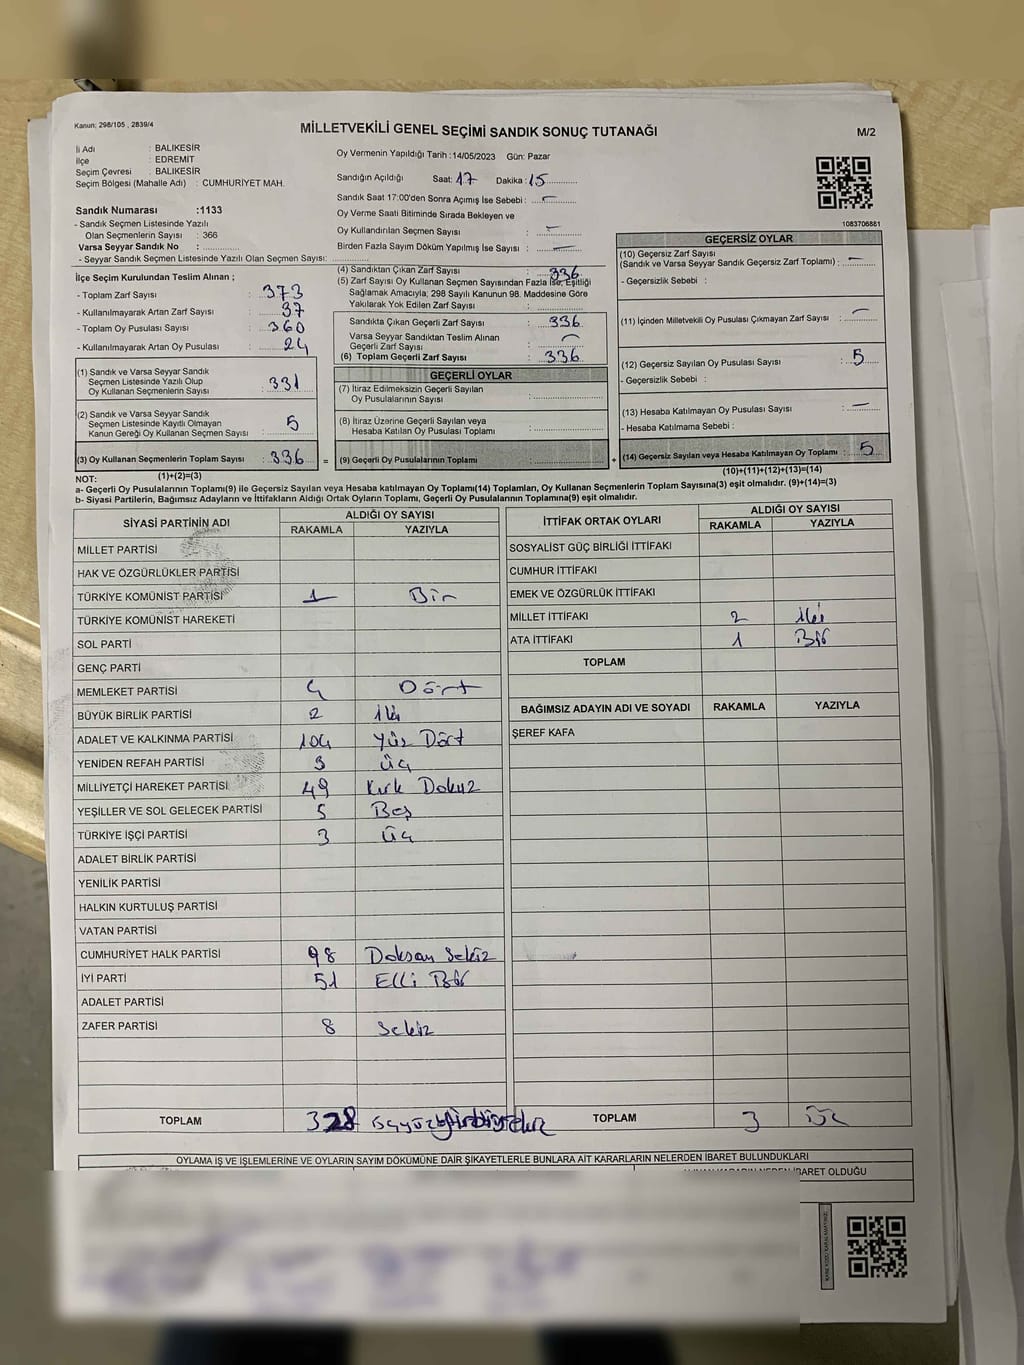 Kanun: 298/105 , 2839/4
MİLLETVEKİLİ GENEL SEÇİMİ SANDIK SONUÇ TUTANAĞI
M/2
İli Adı : BALIKESİR
İlçe : EDREMIT
Seçim Çevresi : BALIKESİR
Seçim Bölgesi (Mahalle Adı) : CUMHURİYET MAH.
Sandık Numarası :1133
- Sandık Seçmen Listesinde Yazılı
Olan Seçmenlerin Sayısı : 366
Varsa Seyyar Sandık No :
- Seyyar Sandık Seçmen Listesinde Yazılı Olan Seçmen Sayısı:
Oy Vermenin Yapıldığı Tarih :14/05/2023 Gün: Pazar
Sandığın Açıldığı Saat: 17 Dakika : 15
Sandık Saat 17:00'den Sonra Açımış İse Sebebi : —
Oy Verme Saati Bitiminde Sırada Bekleyen ve
Oy Kullandırılan Seçmen Sayısı : —
Birden Fazla Sayım Döküm Yapılmış İse Sayısı : —
1083706881
İlçe Seçim Kurulundan Teslim Alınan ;
- Toplam Zarf Sayısı : 373
- Kullanılmayarak Artan Zarf Sayısı : 37
- Toplam Oy Pusulası Sayısı : 360
- Kullanılmayarak Artan Oy Pusulası : 24
(1) Sandık ve Varsa Seyyar Sandık
Seçmen Listesinde Yazılı Olup
Oy Kullanan Seçmenlerin Sayısı : 331
(2) Sandık ve Varsa Seyyar Sandık
Seçmen Listesinde Kayıtlı Olmayan
Kanun Gereği Oy Kullanan Seçmen Sayısı : 5
(3) Oy Kullanan Seçmenlerin Toplam Sayısı : 336
(1)+(2)=(3)
(4) Sandıktan Çıkan Zarf Sayısı : 336
(5) Zarf Sayısı Oy Kullanan Seçmen Sayısından Fazla İse, Eşitliği
Sağlamak Amacıyla; 298 Sayılı Kanunun 98. Maddesine Göre
Yakılarak Yok Edilen Zarf Sayısı :
Sandıkta Çıkan Geçerli Zarf Sayısı : 336
Varsa Seyyar Sandıktan Teslim Alınan
Geçerli Zarf Sayısı : —
(6) Toplam Geçerli Zarf Sayısı : 336
GEÇERLİ OYLAR
(7) İtiraz Edilmeksizin Geçerli Sayılan
Oy Pusulalarının Sayısı :
(8) İtiraz Üzerine Geçerli Sayılan veya
Hesaba Katılan Oy Pusulası Toplamı :
= (9) Geçerli Oy Pusulalarının Toplamı : +
GEÇERSİZ OYLAR
(10) Geçersiz Zarf Sayısı
(Sandık ve Varsa Seyyar Sandık Geçersiz Zarf Toplamı) : —
- Geçersizlik Sebebi :
(11) İçinden Milletvekili Oy Pusulası Çıkmayan Zarf Sayısı : —
(12) Geçersiz Sayılan Oy Pusulası Sayısı : 5
- Geçersizlik Sebebi :
(13) Hesaba Katılmayan Oy Pusulası Sayısı : —
- Hesaba Katılmama Sebebi :
(14) Geçersiz Sayılan veya Hesaba Katılmayan Oy Toplamı : 5
(10)+(11)+(12)+(13)=(14)
NOT:
a- Geçerli Oy Pusulalarının Toplamı(9) ile Geçersiz Sayılan veya Hesaba Katılmayan Oy Toplamı(14) Toplamları, Oy Kullanan Seçmenlerin Toplam Sayısına(3) eşit olmalıdır. (9)+(14)=(3)
b- Siyasi Partilerin, Bağımsız Adayların ve İttifakların Aldığı Ortak Oyların Toplamı, Geçerli Oy Pusulalarının Toplamına(9) eşit olmalıdır.
SİYASİ PARTİNİN ADI ALDIĞI OY SAYISI
RAKAMLA YAZIYLA
MİLLET PARTİSİ
HAK VE ÖZGÜRLÜKLER PARTİSİ
TÜRKİYE KOMÜNİST PARTİSİ 1 Bir
TÜRKİYE KOMÜNİST HAREKETİ
SOL PARTİ
GENÇ PARTİ
MEMLEKET PARTİSİ 4 Dört
BÜYÜK BİRLİK PARTİSİ 2 iki
ADALET VE KALKINMA PARTİSİ 104 Yüz Dört
YENİDEN REFAH PARTİSİ 3 üç
MİLLİYETÇİ HAREKET PARTİSİ 49 Kırk Dokuz
YEŞİLLER VE SOL GELECEK PARTİSİ 5 Beş
TÜRKİYE İŞÇİ PARTİSİ 3 üç
ADALET BİRLİK PARTİSİ
YENİLİK PARTİSİ
HALKIN KURTULUŞ PARTİSİ
VATAN PARTİSİ
CUMHURİYET HALK PARTİSİ 98 Doksan Sekiz
İYİ PARTİ 51 Elli Bir
ADALET PARTİSİ
ZAFER PARTİSİ 8 Sekiz
TOPLAM 328
İTTİFAK ORTAK OYLARI ALDIĞI OY SAYISI
RAKAMLA YAZIYLA
SOSYALİST GÜÇ BİRLİĞİ İTTİFAKI
CUMHUR İTTİFAKI
EMEK VE ÖZGÜRLÜK İTTİFAKI
MİLLET İTTİFAKI 2 iki
ATA İTTİFAKI 1 Bir
TOPLAM
BAĞIMSIZ ADAYIN ADI VE SOYADI RAKAMLA YAZIYLA
ŞEREF KAFA
TOPLAM 3 üç
OYLAMA İŞ VE İŞLEMLERİNE VE OYLARIN SAYIM DÖKÜMÜNE DAİR ŞİKAYETLERLE BUNLARA AİT KARARLARIN NELERDEN İBARET BULUNDUKLARI
İBARET OLDUĞU